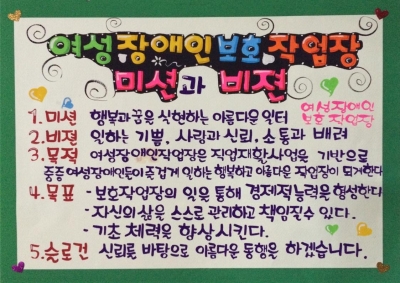 여성장애인보호작업장
미션과 비젼
여성장애인
보호작업장
1. 미션 행복과 꿈을 실현하는 아름다운 일터
2. 비젼 일하는 기쁨, 사랑과 신뢰, 소통과 배려
3. 목적 여성장애인작업장은 직업재활사업을 기반으로
중증여성장애인들이 즐겁게 일하는 행복하고 아름다운 작업장이 되게한다
4. 목표 - 보호작업장의 일을 통해 경제적능력을 형성한다
- 자신의 삶을 스스로 관리하고 책임질수 있다.
- 기초 체력을 향상시킨다.
5. 슬로건 신뢰를 바탕으로 아름다운 동행을 하겠습니다.